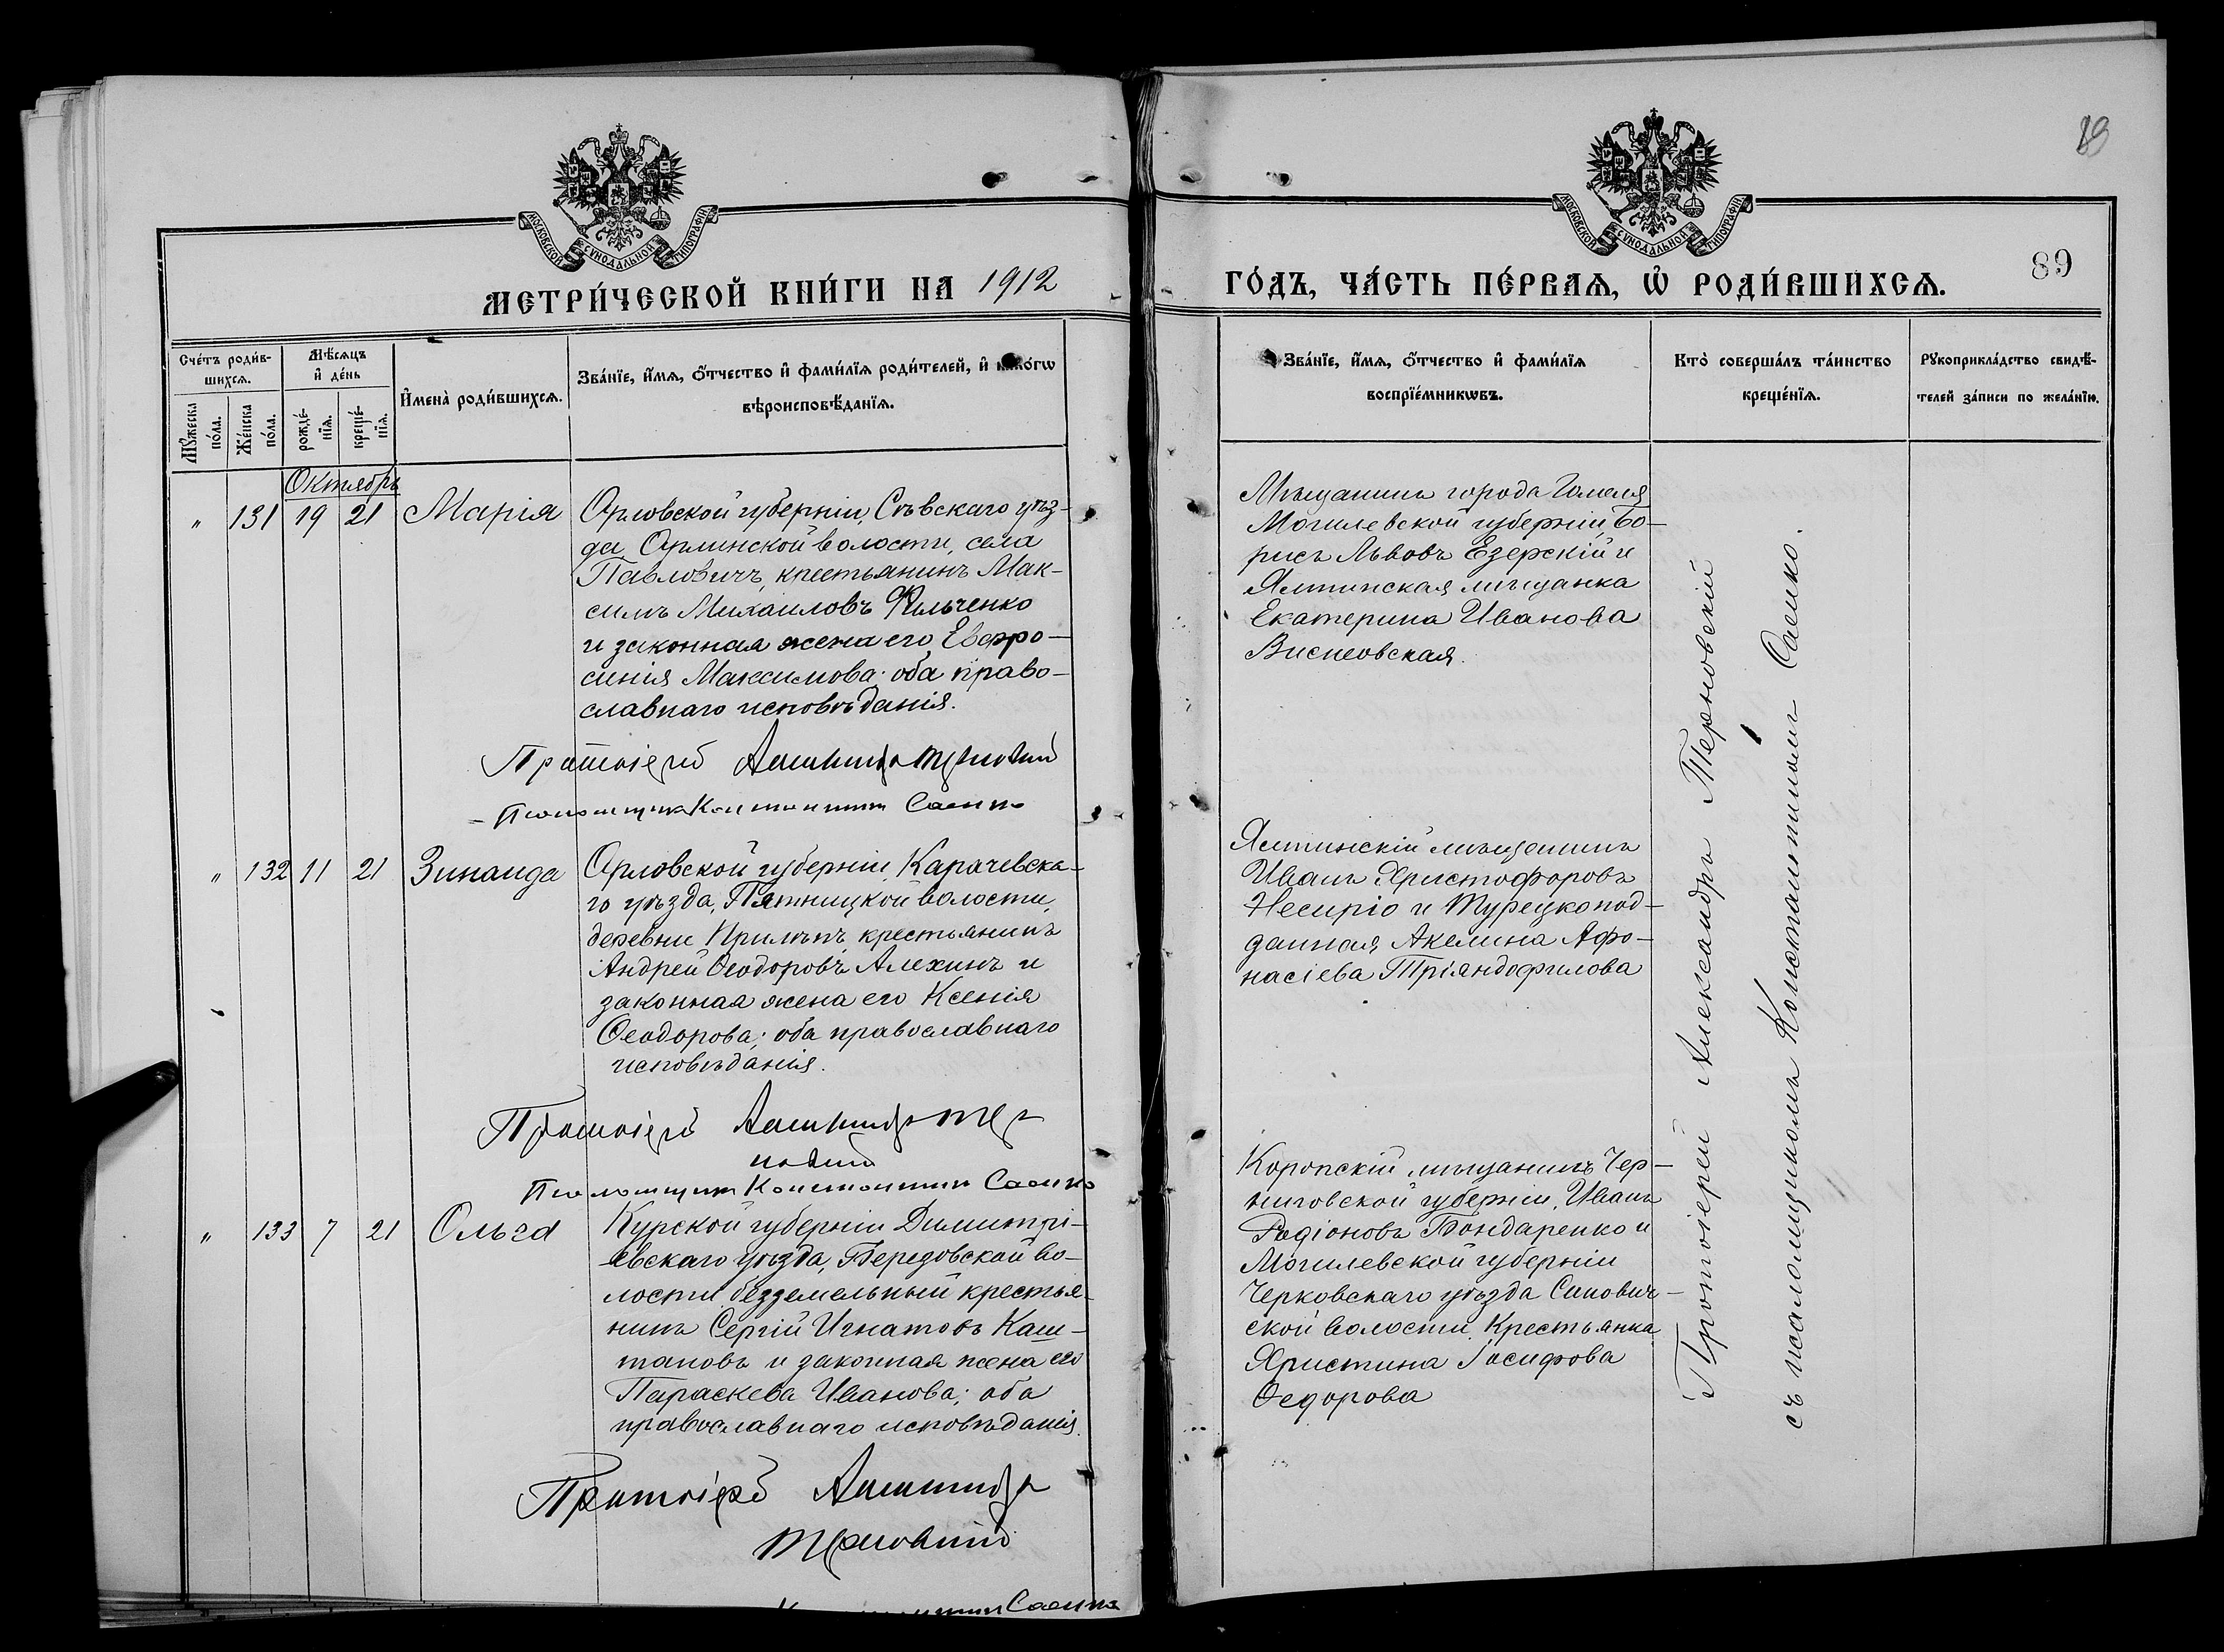 89
МОСКОВСКОЙ СѴНОДАЛЬНОЙ ТИПОГРАФІИ
МОСКОВСКОЙ СѴНОДАЛЬНОЙ ТИПОГРАФІИ
МЕТРИ́ЧЕСКОЙ КНИ́ГИ НА 1912
ГО́ДЪ, ЧА́СТЬ ПЕ́РВАѦ, Ѡ҆ РОДИ́ВШИХСѦ.
89
Сче́тъ роди́в-
шихсѧ.
Мꙋ́жеска по́ла.
Же́нска по́ла.
Мѣ́сѧцъ
и҆ де́нь
рожде́-
нїѧ.
креще́-
нїѧ.
И҆мена̀ роди́вшихсѧ.
Зва́нїе, и҆́мѧ, ѻ҆́тчество и҆ фами́лїѧ роди́телей, и҆ како́гѡ
вѣроисповѣ́данїѧ.
Зва́нїе, и҆́мѧ, ѻ҆́тчество и҆ фами́лїѧ
воспрїе́мникѡвъ.
Кто̀ соверша́лъ та́инство
креще́нїѧ.
Рꙋкоприкла́дство свидѣ́-
телей за́писи по жела́нїю.
Октябрь
" 131 19 21 Марія
Орловской губерніи, Сѣвскаго уѣз-
да Орлинской волости, села
Павловичъ, крестьянинъ Мак-
симъ Михаиловъ Фильченко
и законная жена его Евфро-
синія Максимова; оба право-
славнаго исповѣданія.
Протоіерей Александръ Терновскій
Псаломщикъ Константинъ Саенко
Мѣщанинъ города Гомеля
Могилевской губерніи, Бо-
рисъ Львовъ Езерскій и
Ялтинская мѣщанка
Екатерина Иванова
Висневская.
" 132 11 21 Зинаида
Орловской губерніи, Карачевска-
го уѣзда, Пятницкой волости,
деревни Прилѣпъ, крестьянинъ
Андрей Ѳеодоровъ Алехинъ и
законная жена его Ксенія
Ѳеодорова; оба православнаго
исповѣданія.
Протоіерей Александръ Тер-
новскій
Псаломщикъ Константинъ Саенко
Ялтинскій мѣщанинъ
Иванъ Христофоровъ
Несиріо и Турецкопод-
данная Акелина Афо-
насіева Тріандофилова
" 133 7 21 Ольга
Курской губерніи Димитрі-
евскаго уѣзда, Береговской во-
лости безземельный крестья-
нинъ Сергій Игнатовъ Каш-
тановъ и законная жена его
Параскева Иванова; оба
православнаго исповѣданія.
Протоіерей Александръ
Терновскій
Саенко
Коропскій мѣщанинъ Чер-
ниговской губерніи, Иванъ
Родіоновъ Бондаренко и
Могилевской губерніи
Черковскаго уѣзда Синович-
ской волости, Крестьянка
Христина Іосифова
Ѳедорова
Протоіерей Александръ Терновскій
съ псаломщикомъ Константиномъ Саенко.